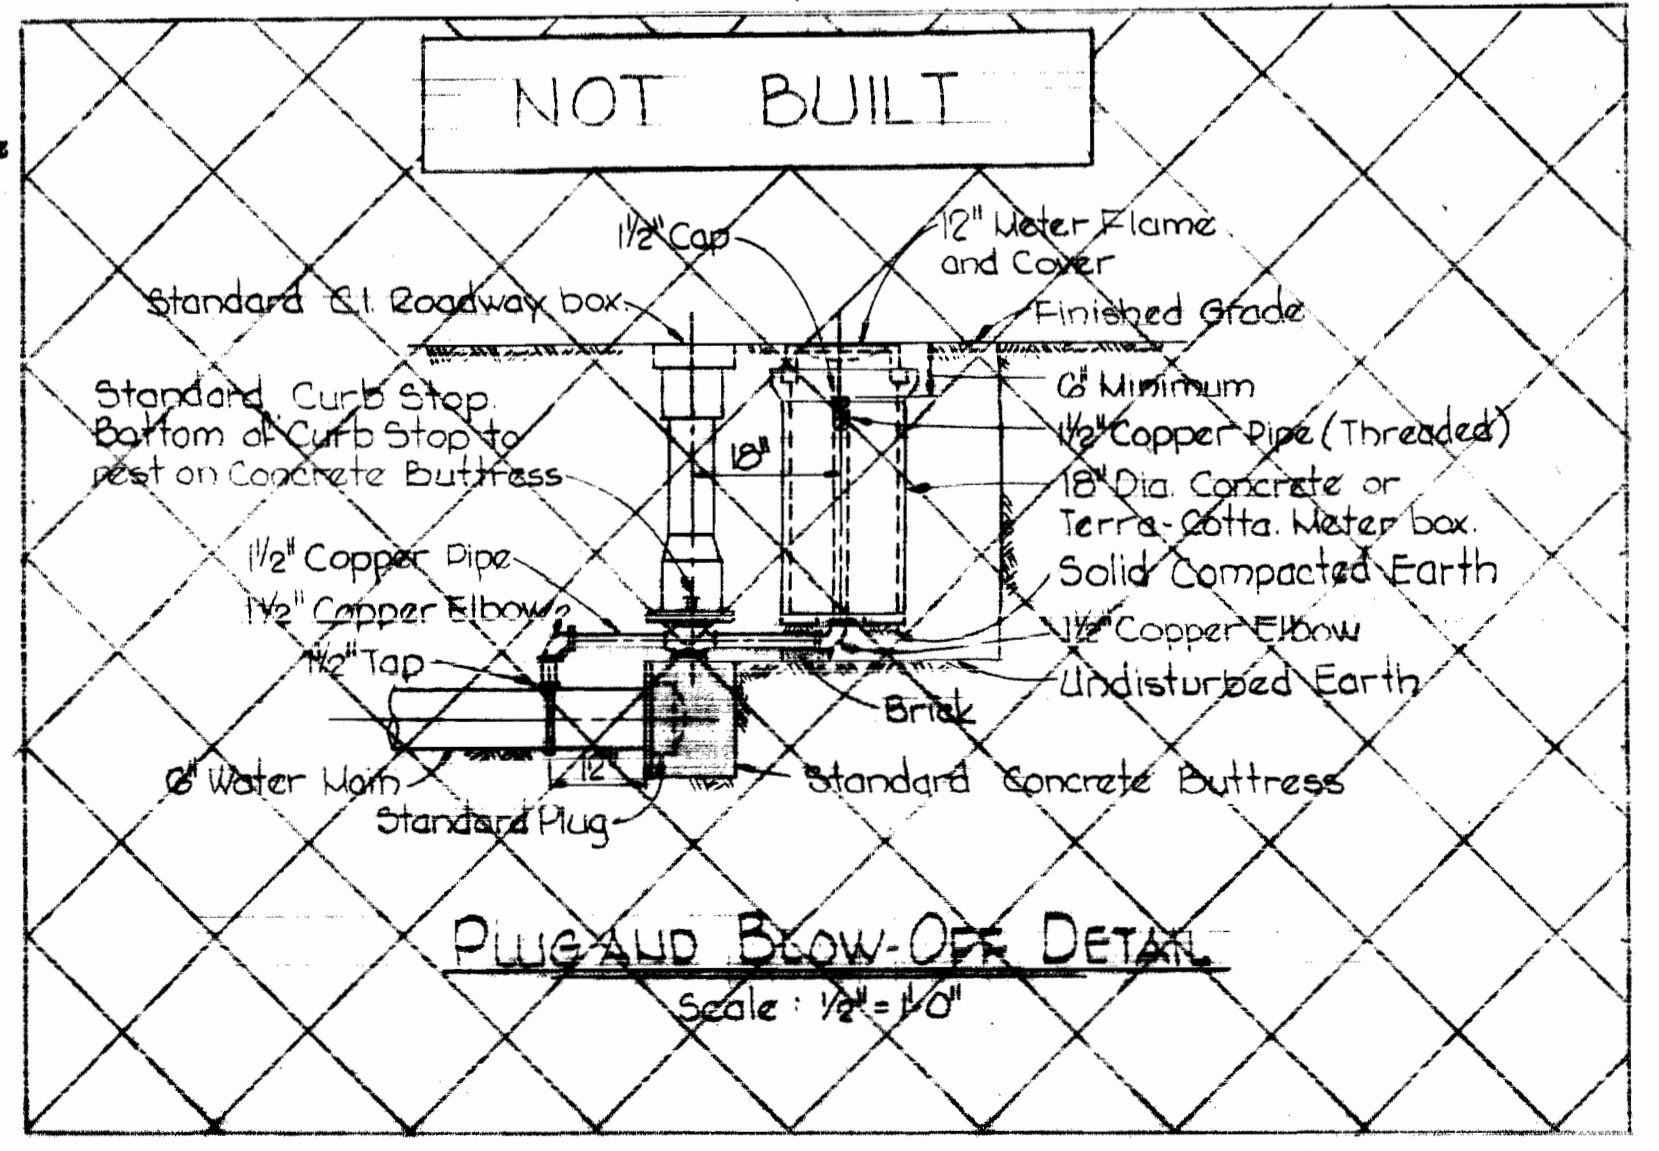 NOT BUILT
1½" Cap
12" Meter Flame
and Cover
Standard C.I. Roadway box.
Finished Grade
Standard Curb Stop.
Bottom of Curb Stop to
rest on Concrete Buttress
6" Minimum
1½" Copper Pipe (Threaded)
18"
18" Dia. Concrete or
Terra-Cotta. Meter box.
1½" Copper Pipe
Solid Compacted Earth
1½" Copper Elbow
1½" Copper Elbow
1½" Tap
Undisturbed Earth
Brick
6" Water Main
12"
Standard Concrete Buttress
Standard Plug
PLUG AND BLOW-OFF DETAIL
Scale : ½" = 1'-0"